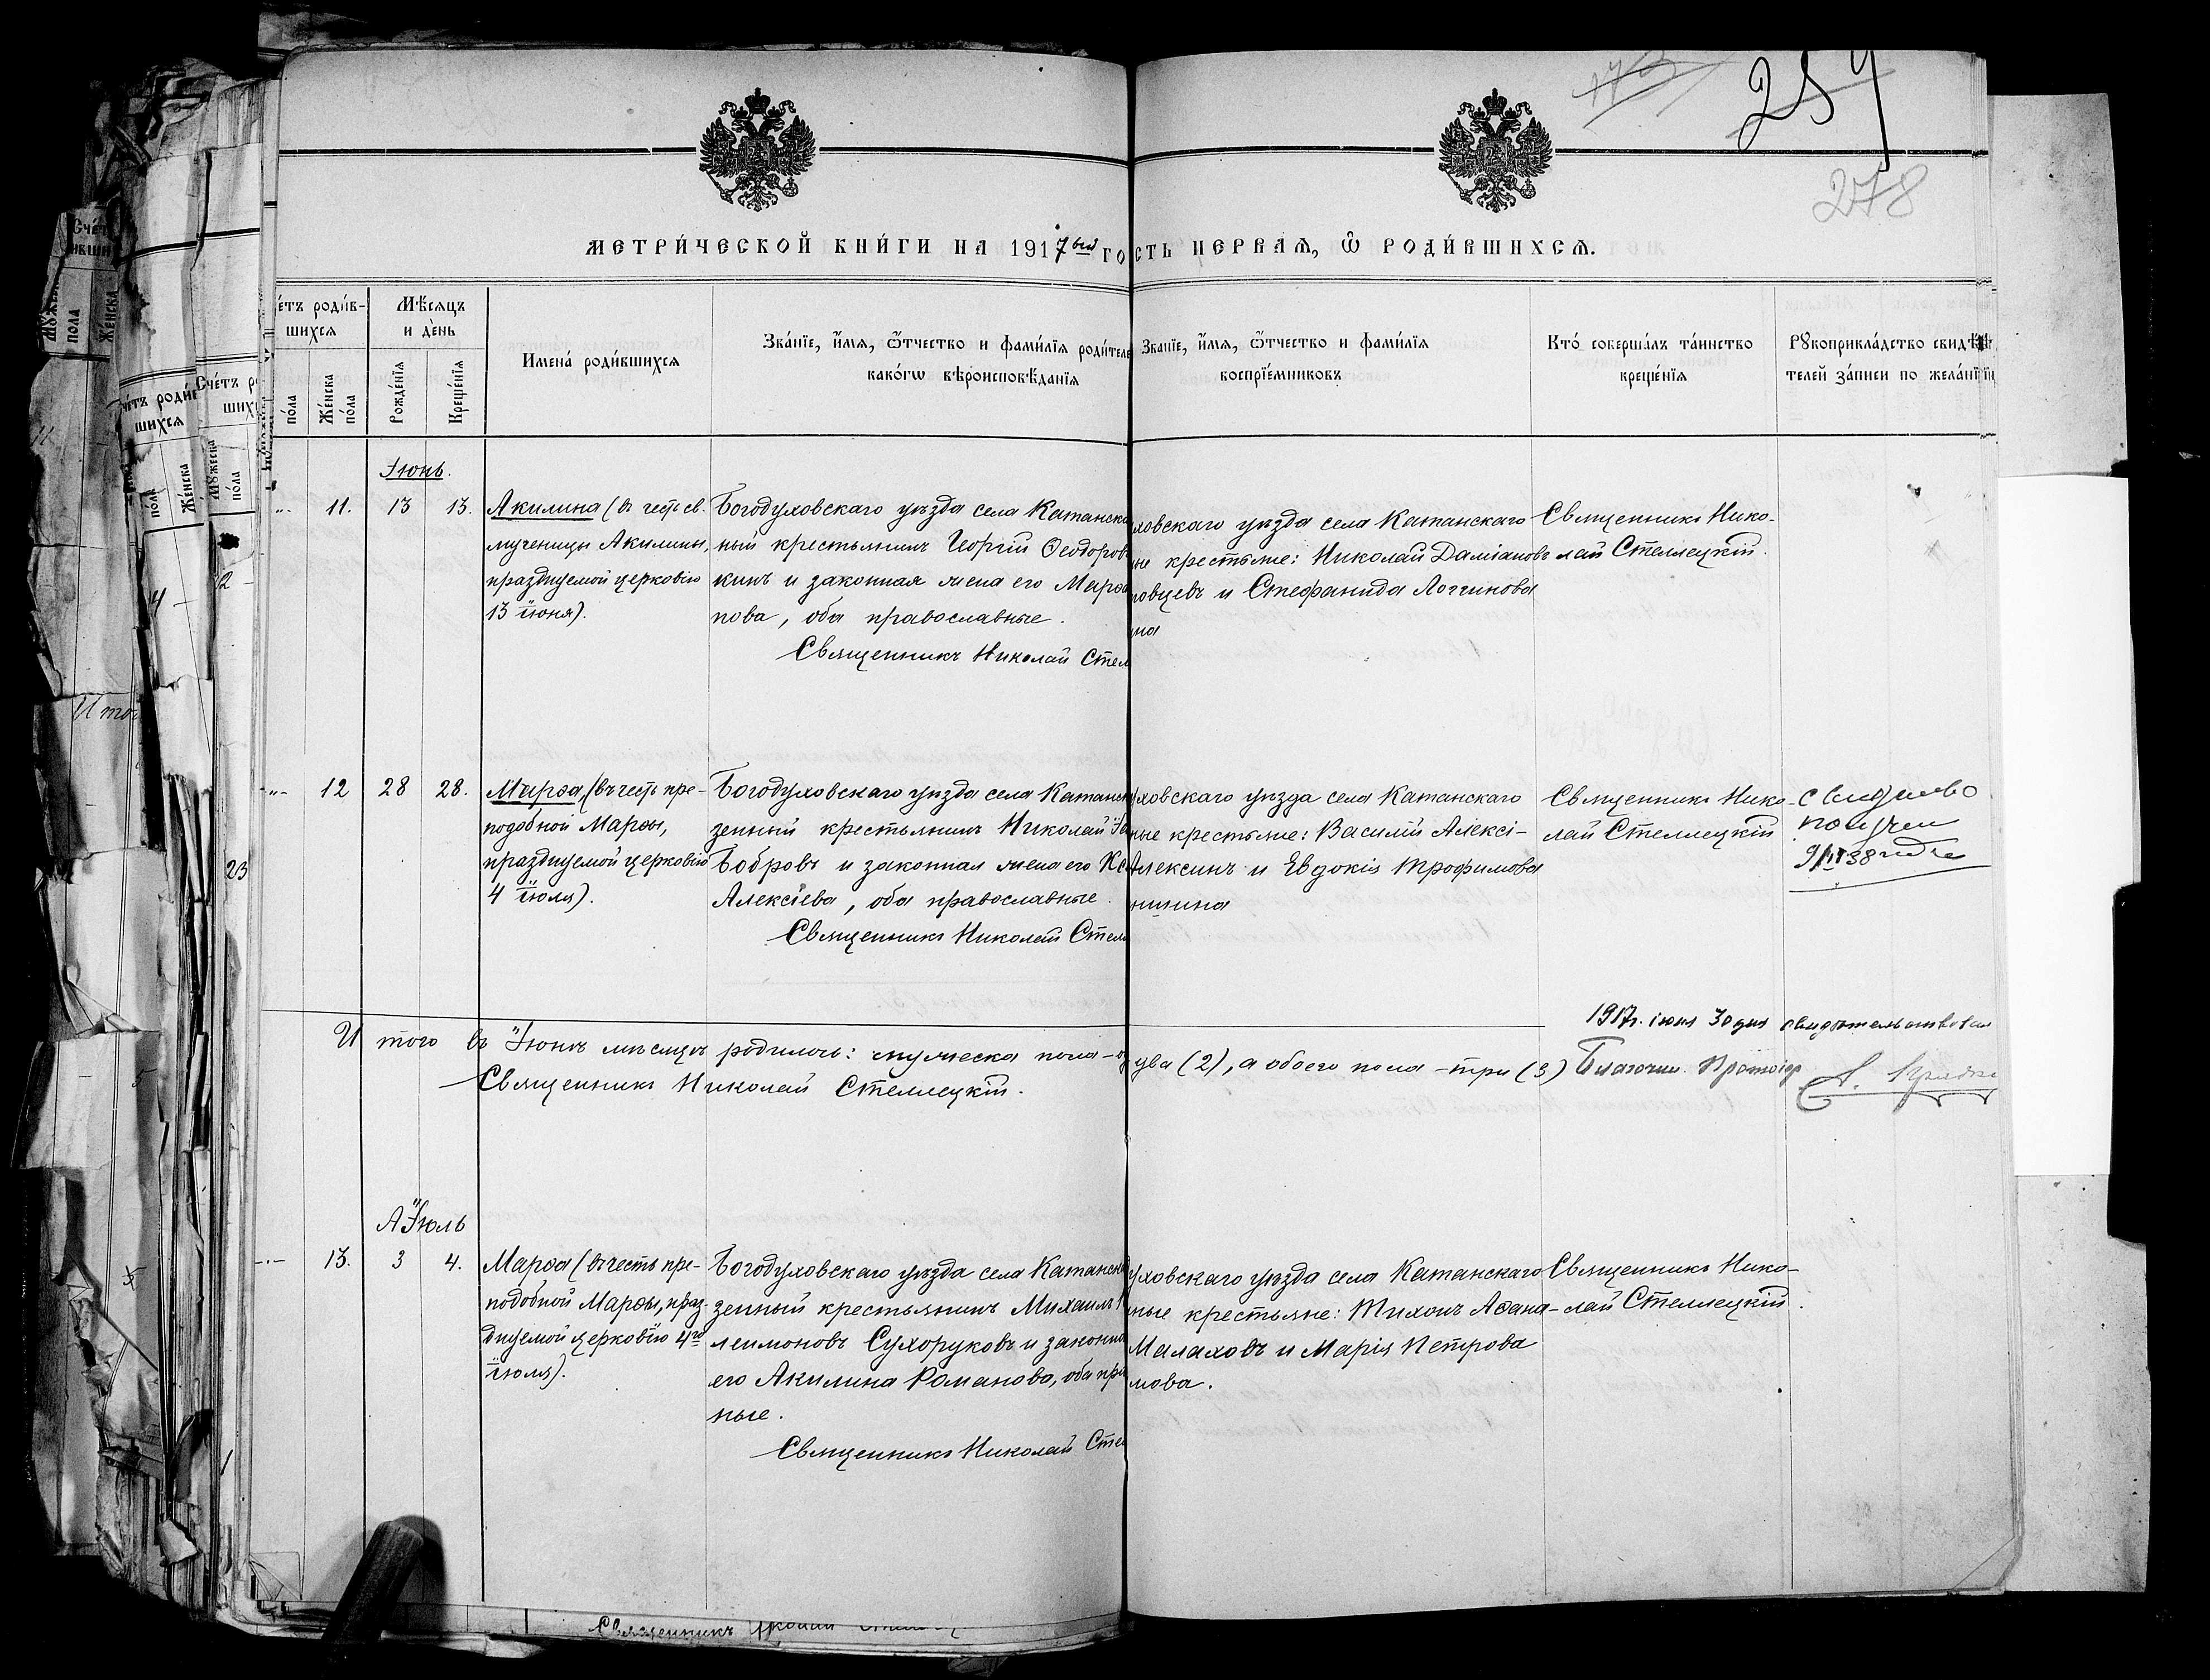 259
278
МЕТРИ́ЧЕСКОЙ КНИ́ГИ НА 1917 ый ГО
СТЬ ПЕРВАѦ, Ѡ҆ РОДИ́ВШИХСѦ.
е́тъ роди́в-
шихсѧ
по́ла
Же́нска по́ла
Мѣ́сѧцъ
и де́нь
Рожде́нїѧ
Креще́нїѧ
Имена́ роди́вшихсѧ
Зва́нїе, и҆́мѧ, ѻ҆́тчество и фами́лїѧ роди́теле
како́гѡ вѣроисповѣ́данїѧ
Зва́нїе, и҆́мѧ, ѻ҆́тчество и фами́лїѧ
воспрїе́мниковъ
Кто́ соверша́лъ та́инство
креще́нїѧ
Рꙋкоприкла́дство свидѣ́-
телей за́писи по жела́нї
Іюнь.
11. 13 13.
Акилина (въ честь св.
мученицы Акилины,
празднуемой церковію
13 іюня).
Богодуховскаго уѣзда села Катанска
ный крестьянинъ Георгій Ѳеодоров
кинъ и законная жена его Марѳа
пова, оба православные.
Священникъ Николай Стел
ховскаго уѣзда села Катанскаго
ые крестьяне: Николай Даміановъ
овцевъ и Стефанида Логгинова
на
Священникъ Нико-
лай Стеллецкій.
12 28 28.
Марѳа, (въ честь пре-
подобной Марѳы,
празднуемой церковію
4 іюля).
Богодуховскаго уѣзда села Катанск
зенный крестьянинъ Николай
Бобровъ и законная жена его Кс
Алексіева, оба православные.
Священникъ Николай Стел
уховскаго уѣзда села Катанскаго
ные крестьяне: Василій Алексі-
Алексинъ и Евдокія Трофимова
нишина
Священникъ Нико-
лай Стеллецкій
И того въ Іюнѣ мѣсяцѣ родилось: мужеска пола - о
два (2), а обоего пола - три (3)
Священникъ Николай Стеллецкій.
1917г. іюня 30 дня свидѣтельствовал
Благочин. Протоіер
Іюль
13. 3 4.
Марѳа (въ честь пре-
подобной Марѳы, праз-
днуемой церковію 4го
іюля).
Богодуховскаго уѣзда села Катанск
зенный крестьянинъ Михаилъ
леимоновъ Сухоруковъ и законна
его Акилина Романова, оба пра
ные.
Священникъ Николай Стел
уховскаго уѣзда села Катанскаго
ные крестьяне: Тихонъ Аѳана-
Малаховъ и Марія Петрова
мова.
Священникъ Нико-
лай Стеллецкій.